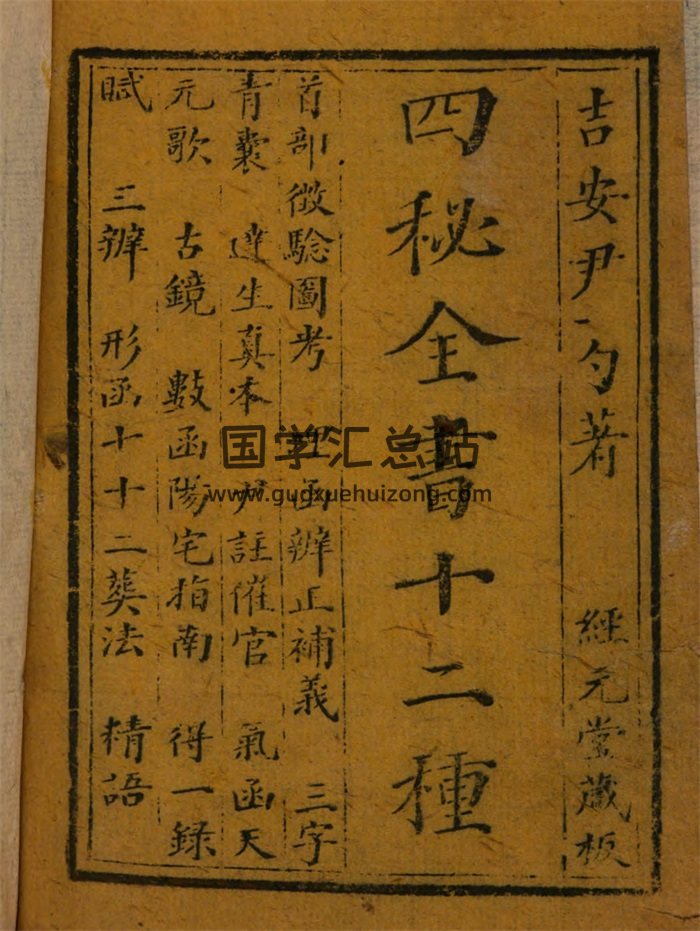 吉安尹一勺著 經元堂藏板
四秘全書十二種
首部徵驗圖考 理函辨正補義 三字
青囊 達生真本 尹註催官 氣函天
元歌 古鏡 數函陽宅指南 得一録
賦 三辨 形函十十二葬法 精語
国学汇总站
www.gudxuehuizong.com